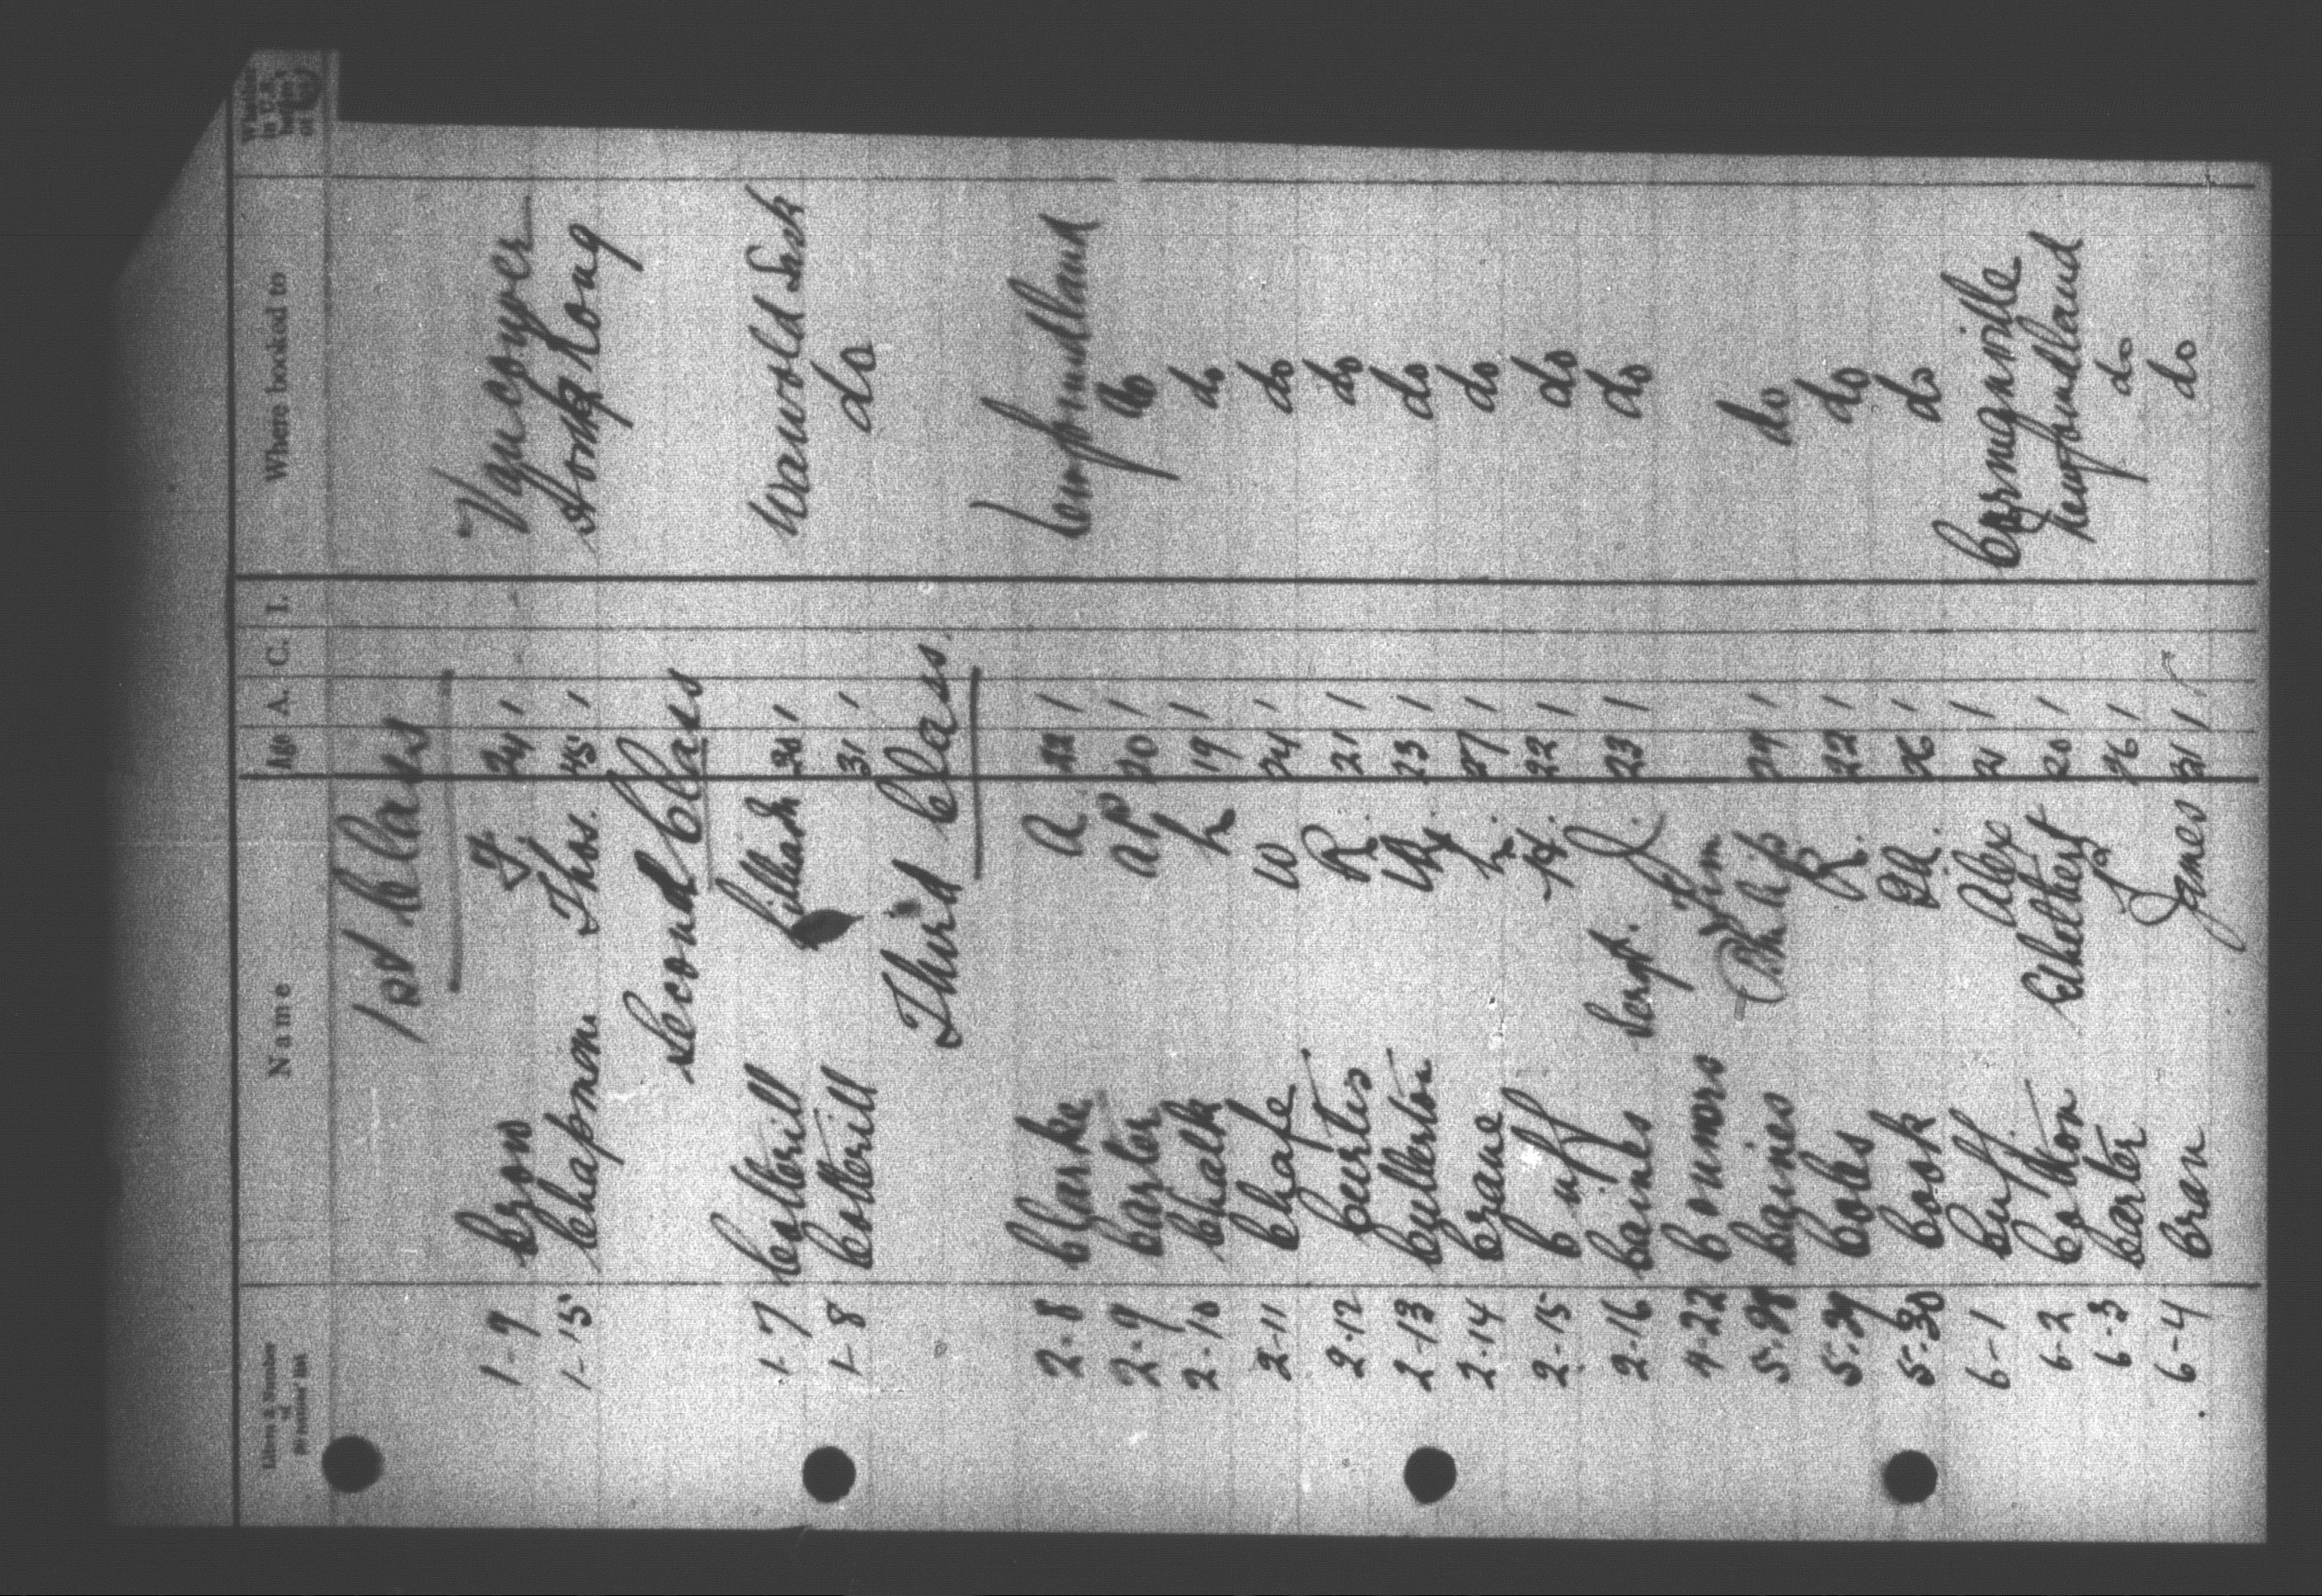 Name Age A. C. I. Where booked to
1st Class
1-9 Cron J F 24 1 Vancouver
1-15 Chapman Thos. 45 1 Hong Kong
Second Class
1-7 Cotterill 1 Sask
1-8 Cotterill 31 1 do
Third Class
2-8 Clarke A 1 Newfoundland
2-9 Carter AP 20 1 do
2-10 Chalk L 19 1 do
2-11 Chafe W 24 1 do
2-12 Curtis R. 21 1 do
2-13 Cullerton 23 1 do
2-14 Crane L. 27 1 do
2-15 Cuff H. 22 1 do
2-16 Cains Sergt. J. 23 1 do
4-22 Connors Jim
5-28 Caines Philip 29 1 do
5-29 Coles R. 22 1 do
5-30 Cook 26 1 do
6-1 Cuff Alex 21 1
6-2 Cotton Ethelbert 20 1 Newfoundland
6-3 Carter L 26 1 do
6-4 Cran James 31 1 do